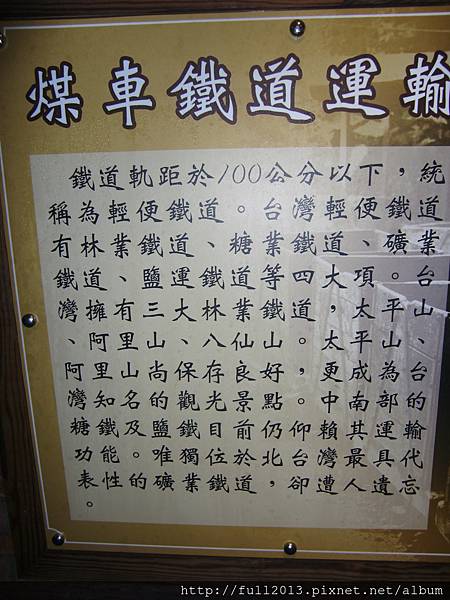 煤車鐵道運輸
鐵道軌距於100公分以下，統
稱為輕便鐵道。台灣輕便鐵道
有林業鐵道、糖業鐵道、礦業
鐵道、鹽運鐵道等四大項。台
灣擁有三大林業鐵道，太平山
、阿里山、八仙山。太平山、
阿里山尚保存良好，更成為台
灣知名的觀光景點。中南部的
糖鐵及鹽鐵目前仍仰賴其運輸
功能。唯獨位於北台灣最具代
表性的礦業鐵道，卻遭人遺忘
。
http://full2013.pixnet.net/album